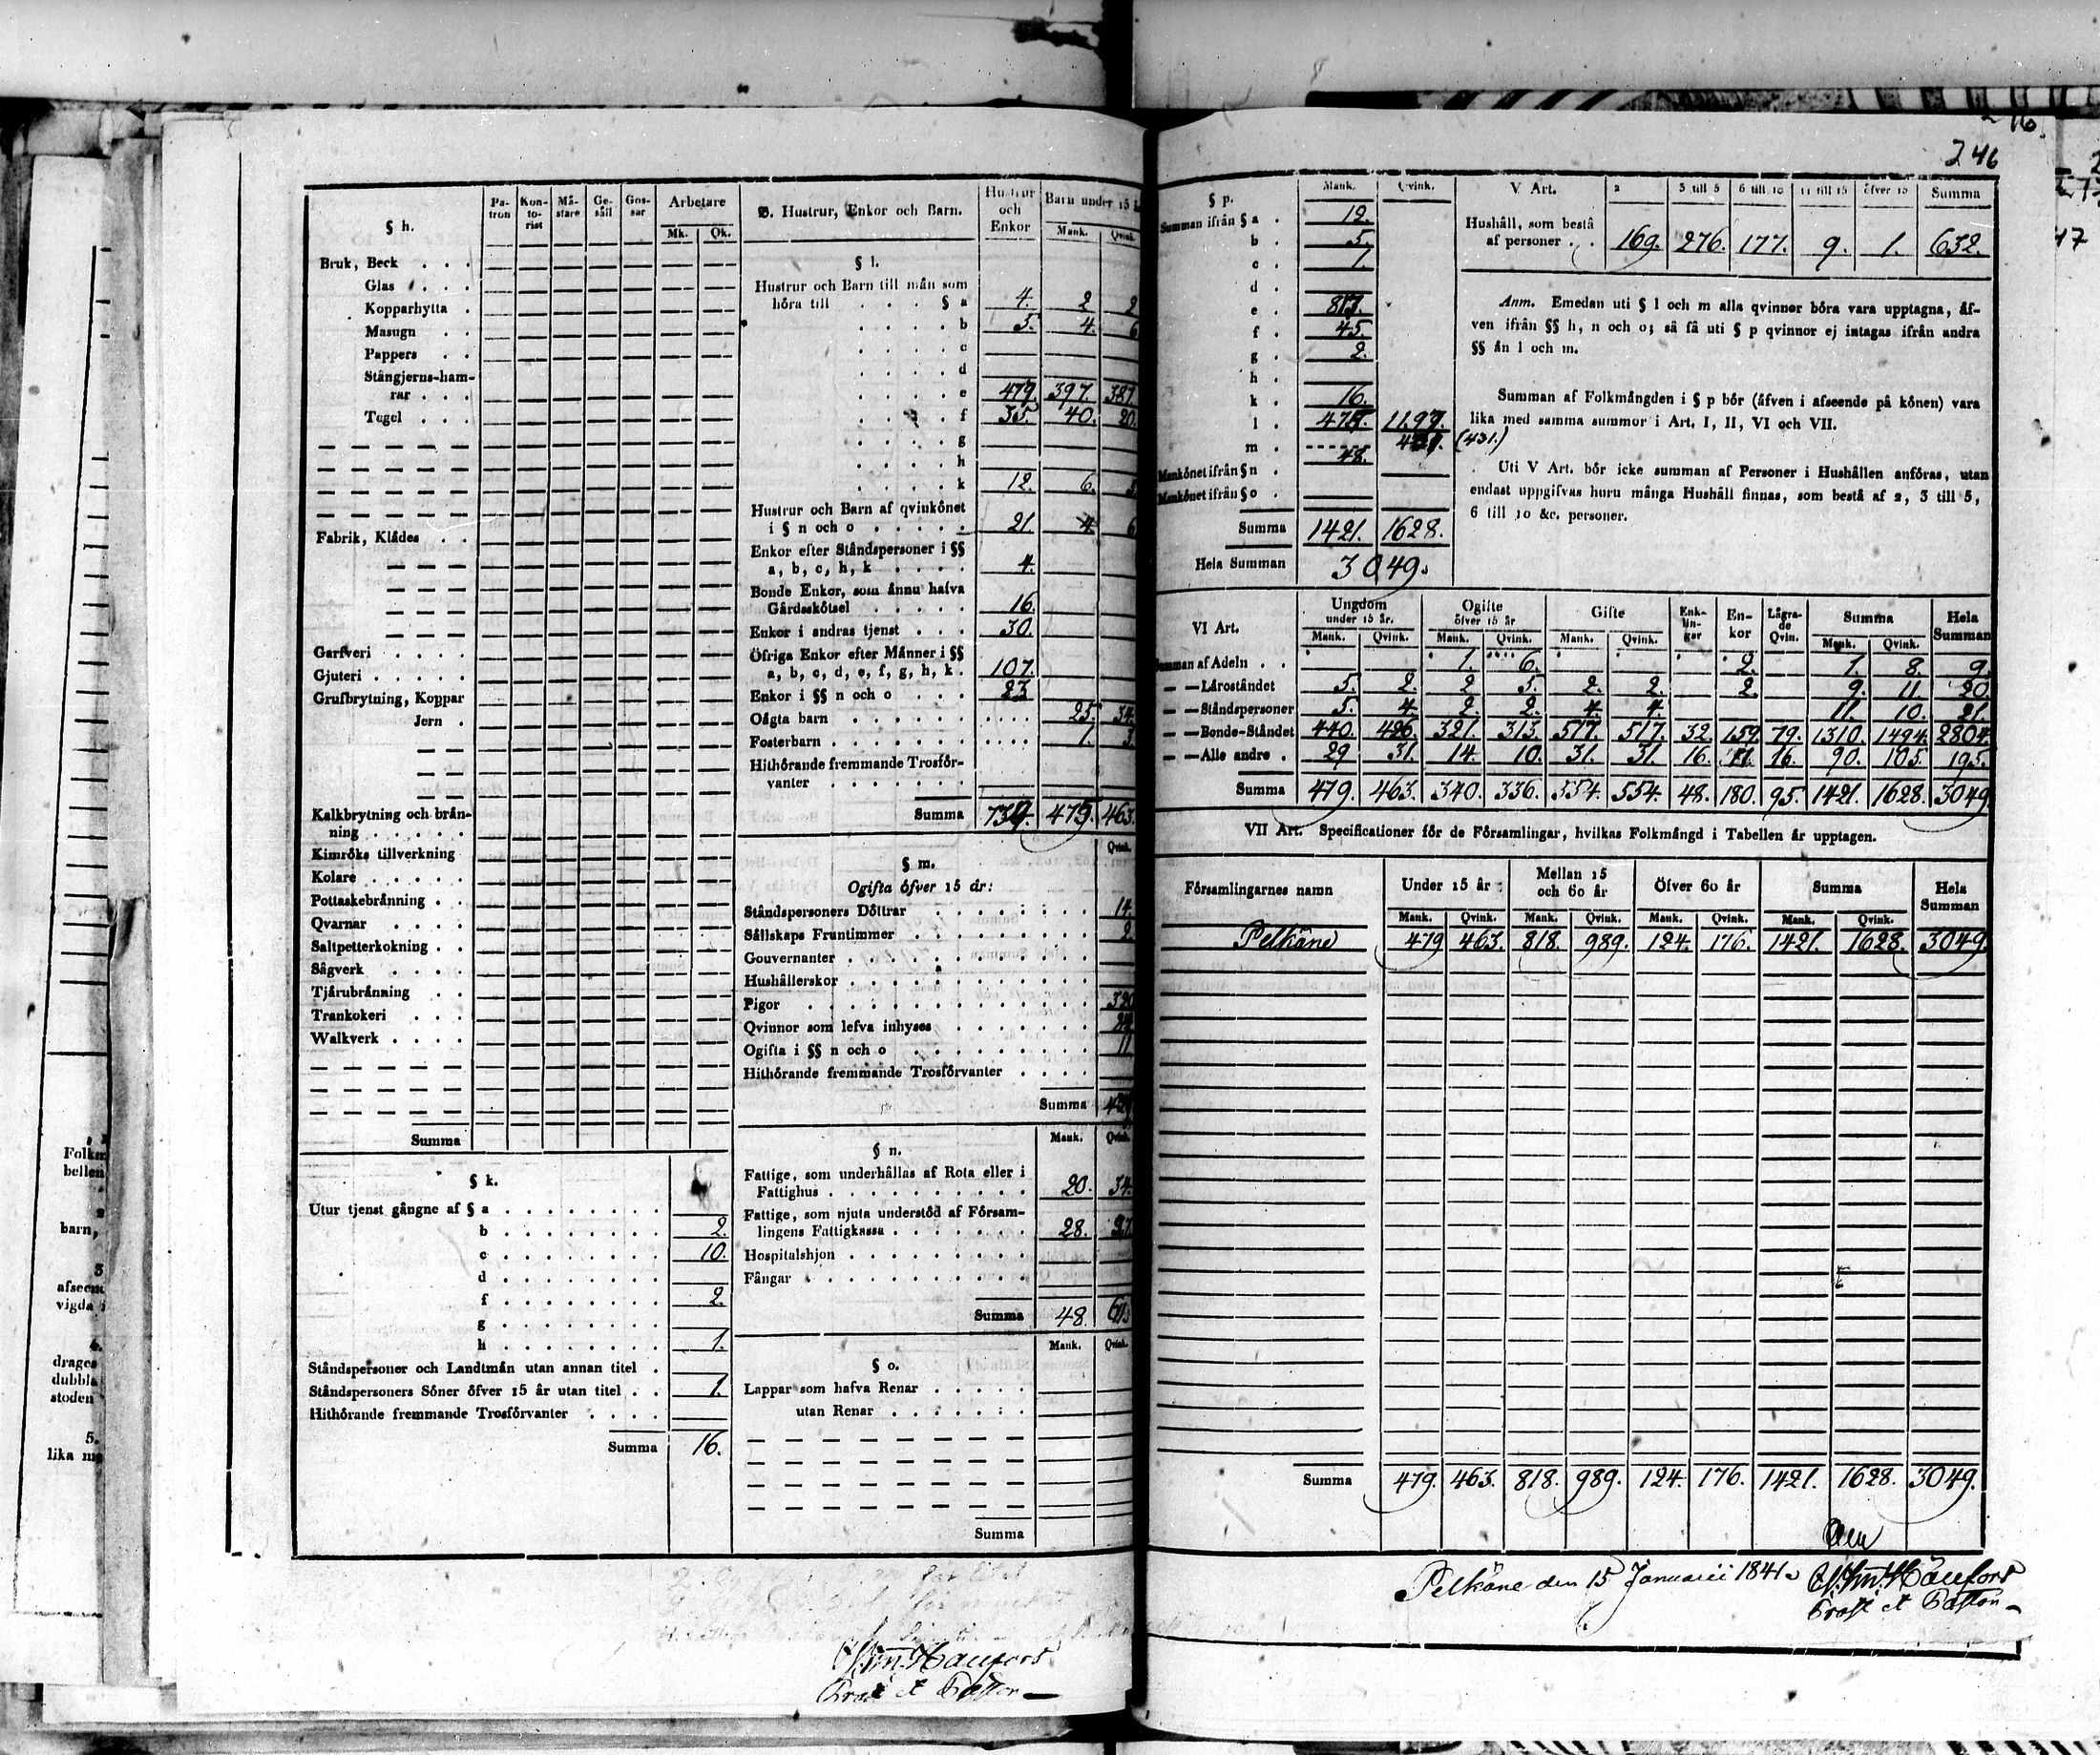 246
§ h.
Patron Kontorist Mästare Gesäll Gossar Arbetare
Mk. Qk.
Bruk, Beck . . .
Glas . . . .
Kopparhytta .
Masugn . .
Pappers . .
Stångjerns-ham-
rar . . .
Tegel . . .
Fabrik, Klädes . .
Garfveri . . . .
Gjuteri . . . . .
Grufbrytning, Koppar
Jern .
Kalkbrytning och brän-
ning . . . . .
Kimröks tillverkning
Kolare . . . . .
Pottaskebränning . .
Qvarnar . . . .
Saltpetterkokning . .
Sågverk . . . .
Tjärubränning . .
Trankokeri . . .
Walkverk . . . .
Summa
§ k.
Utur tjenst gångne af § a . . . . . . . .
b . . . . . . . . 2.
c . . . . . . . . 10.
d . . . . . . . .
f . . . . . . . . 2.
g . . . . . . . .
h . . . . . . . . 1.
Ståndspersoner och Landtmän utan annan titel .
Ståndspersoners Söner öfver 15 år utan titel . . 1.
Hithörande fremmande Trosförvanter . . . .
Summa 16.
B. Hustrur, Enkor och Barn.
Hustrur och Enkor Barn under 15 
Mank. Qvink.
§ l.
Hustrur och Barn till män som
höra till . . . § a 4. 2 2
b 5. 4. 6
c
d
e 479. 397. 387.
f 35. 40. 20.
g
h
k 12. 6.
Hustrur och Barn af qvinkönet
i § n och o . . . . . 21. 4 6
Enkor efter Ståndspersoner i §§
a, b, c, h, k . . . . 4.
Bonde Enkor, som ännu hafva
Gårdsskötsel . . . . . 16.
Enkor i andras tjenst . . . 30.
Öfriga Enkor efter Männer i §§
a, b, c, d, e, f, g, h, k . 107.
Enkor i §§ n och o . . . 23
Oägta barn . . . . . . .... 25. 34.
Fosterbarn . . . . . . . .... 1. 3.
Hithörande fremmande Trosför-
vanter . . . . . .
Summa 739. 479. 463.
Qvink.
§ m.
Ogifta öfver 15 år:
Ståndspersoners Döttrar . . . . . . . 14.
Sällskaps Fruntimmer . . . . . . . . 2.
Gouvernanter . . . . . . . . . .
Hushållerskor . . . . . . . . . .
Pigor . . . . . . . . . . . 320
Qvinnor som lefva inhyses . . . . . . .
Ogifta i §§ n och o . . . . . . . . 11.
Hithörande fremmande Trosförvanter . . . .
Summa
Mank. Qvink.
§ n.
Fattige, som underhållas af Rota eller i
Fattighus . . . . . . . . . . 20. 34.
Fattige, som njuta understöd af Försam-
lingens Fattigkassa . . . . . . . 28.
Hospitalshjon . . . . . . . . .
Fångar . . . . . . . . . . .
Summa 48.
Mank. Qvink.
§ o.
Lappar som hafva Renar . . . . .
utan Renar . . . . . .
Summa
Prost et Pastor
§ p.
Mank. Qvink.
Summan ifrån § a . 12.
b . 5.
c . 1.
d .
e . 813.
f . 45.
g . 2.
h .
k . 16.
l . 479. 1197.
m . (431.)
Mankönet ifrån § n . 48.
Mankönet ifrån § o .
Summa 1421. 1628.
Hela Summan 3049.
V Art. 2 3 till 5 6 till 10 11 till 15 öfver 15 Summa
Hushåll, som bestå
af personer . . 169. 276. 177. 9. 1. 632.
Anm. Emedan uti § l och m alla qvinnor böra vara upptagna, äf-
ven ifrån §§ h, n och o; så få uti § p qvinnor ej intagas ifrån andra
§§ än l och m.
Summan af Folkmängden i § p bör (äfven i afseende på könen) vara
lika med samma summor i Art. I, II, VI och VII.
Uti V Art. bör icke summan af Personer i Hushållen anföras, utan
endast uppgifvas huru många Hushåll finnas, som bestå af 2, 3 till 5,
6 till 10 &c. personer.
VI Art. Ungdom under 15 år. Ogifte öfver 15 år Gifte Enk-lin-gar En-kor Lägra-de Qvin. Summa Hela Summan
Mank. Qvink. Mank. Qvink. Mank. Qvink. Mank. Qvink.
Summan af Adeln . . 1. 6. 2. 1. 8. 9.
— — Läroståndet 5. 2. 2 5. 2. 2. 2. 9. 11. 20.
— — Ståndspersoner 5. 4. 2. 2. 4. 4. 11. 10. 21.
— — Bonde-Ståndet 440. 426. 321. 313. 517. 517. 32. 159. 79. 1310. 1494. 2804.
— — Alle andre . 29 31. 14. 10. 31. 31. 16. 16. 90. 105. 195.
Summa 479. 463. 340. 336. 554. 554. 48. 180. 95. 1421. 1628. 3049
VII Art. Specificationer för de Församlingar, hvilkas Folkmängd i Tabellen är upptagen.
Församlingarnes namn Under 15 år Mellan 15 och 60 år Öfver 60 år Summa Hela Summan
Mank. Qvink. Mank. Qvink. Mank. Qvink. Mank. Qvink.
Pelkäne 479 463. 818. 989. 124. 176. 1421. 1628. 3049.
Summa 479. 463. 818. 989. 124. 176. 1421. 1628. 3049.
Pelkäne den 15 Januarii 1841.
Prost et Pastor